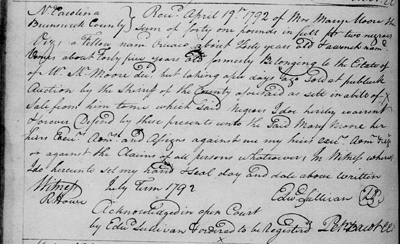 N. Carolina
Brunswick County
Recd. April 19th. 1792 of Mrs. Mary Moore the
sum of forty one pounds in full for two negroes
Viz, a Fellow nam about Forty years old &
about Forty five years old formerly Belonging to the Estate of
of W. Moore decd. but taking a few days ago Sold at publick
Auction by the Sherriff of the County aforsaid as
Sale from him to me which said Negroes I do hereby warrent &
Forever Defend by these presents unto the Said Mary Moore her
heirs Exrs. Admrs. and Assigns against me my heirs
or against the Claims of all persons whatsoever, In Witness whereof
I do hereunto set my hand & Seal day and date above written
Witness
July Term 1792
Edwd. Sullivan
Acknowledged in open Court
by Edwd. Sullivan & ordered to be Registered